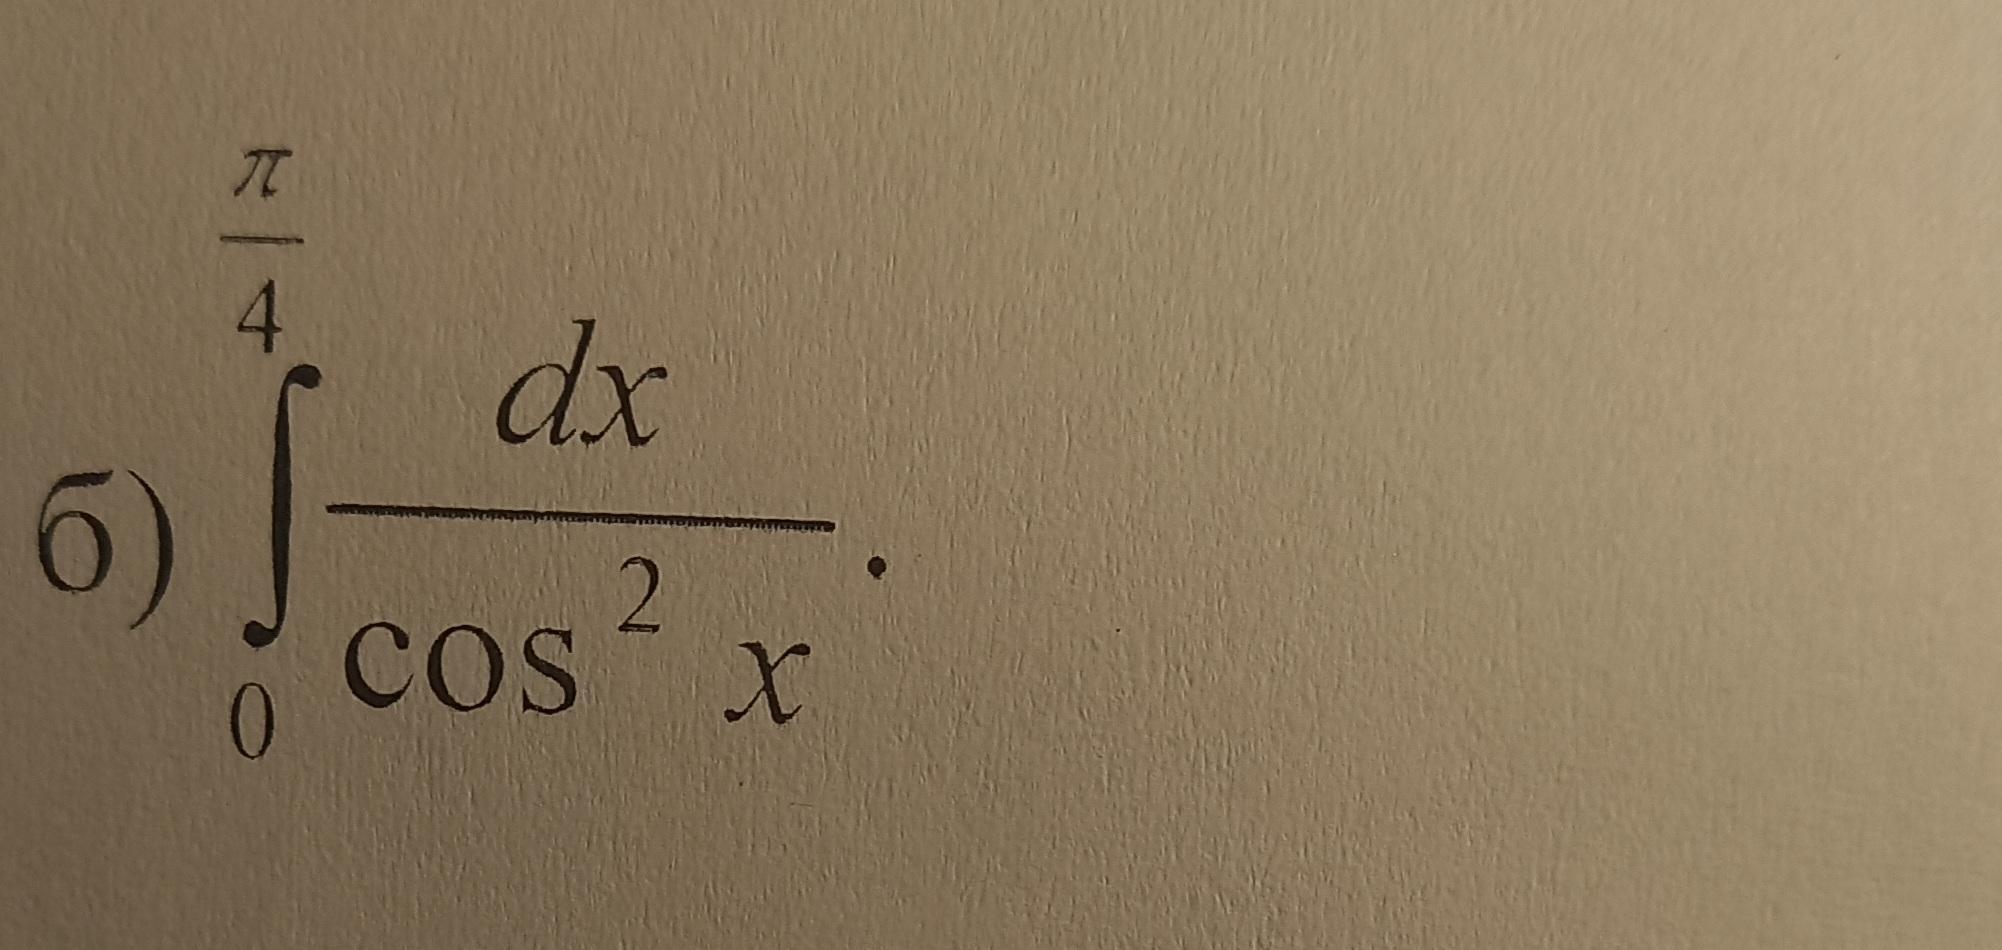 б) $\int_{0}^{\frac{\pi}{4}} \frac{dx}{\cos^2 x}.$